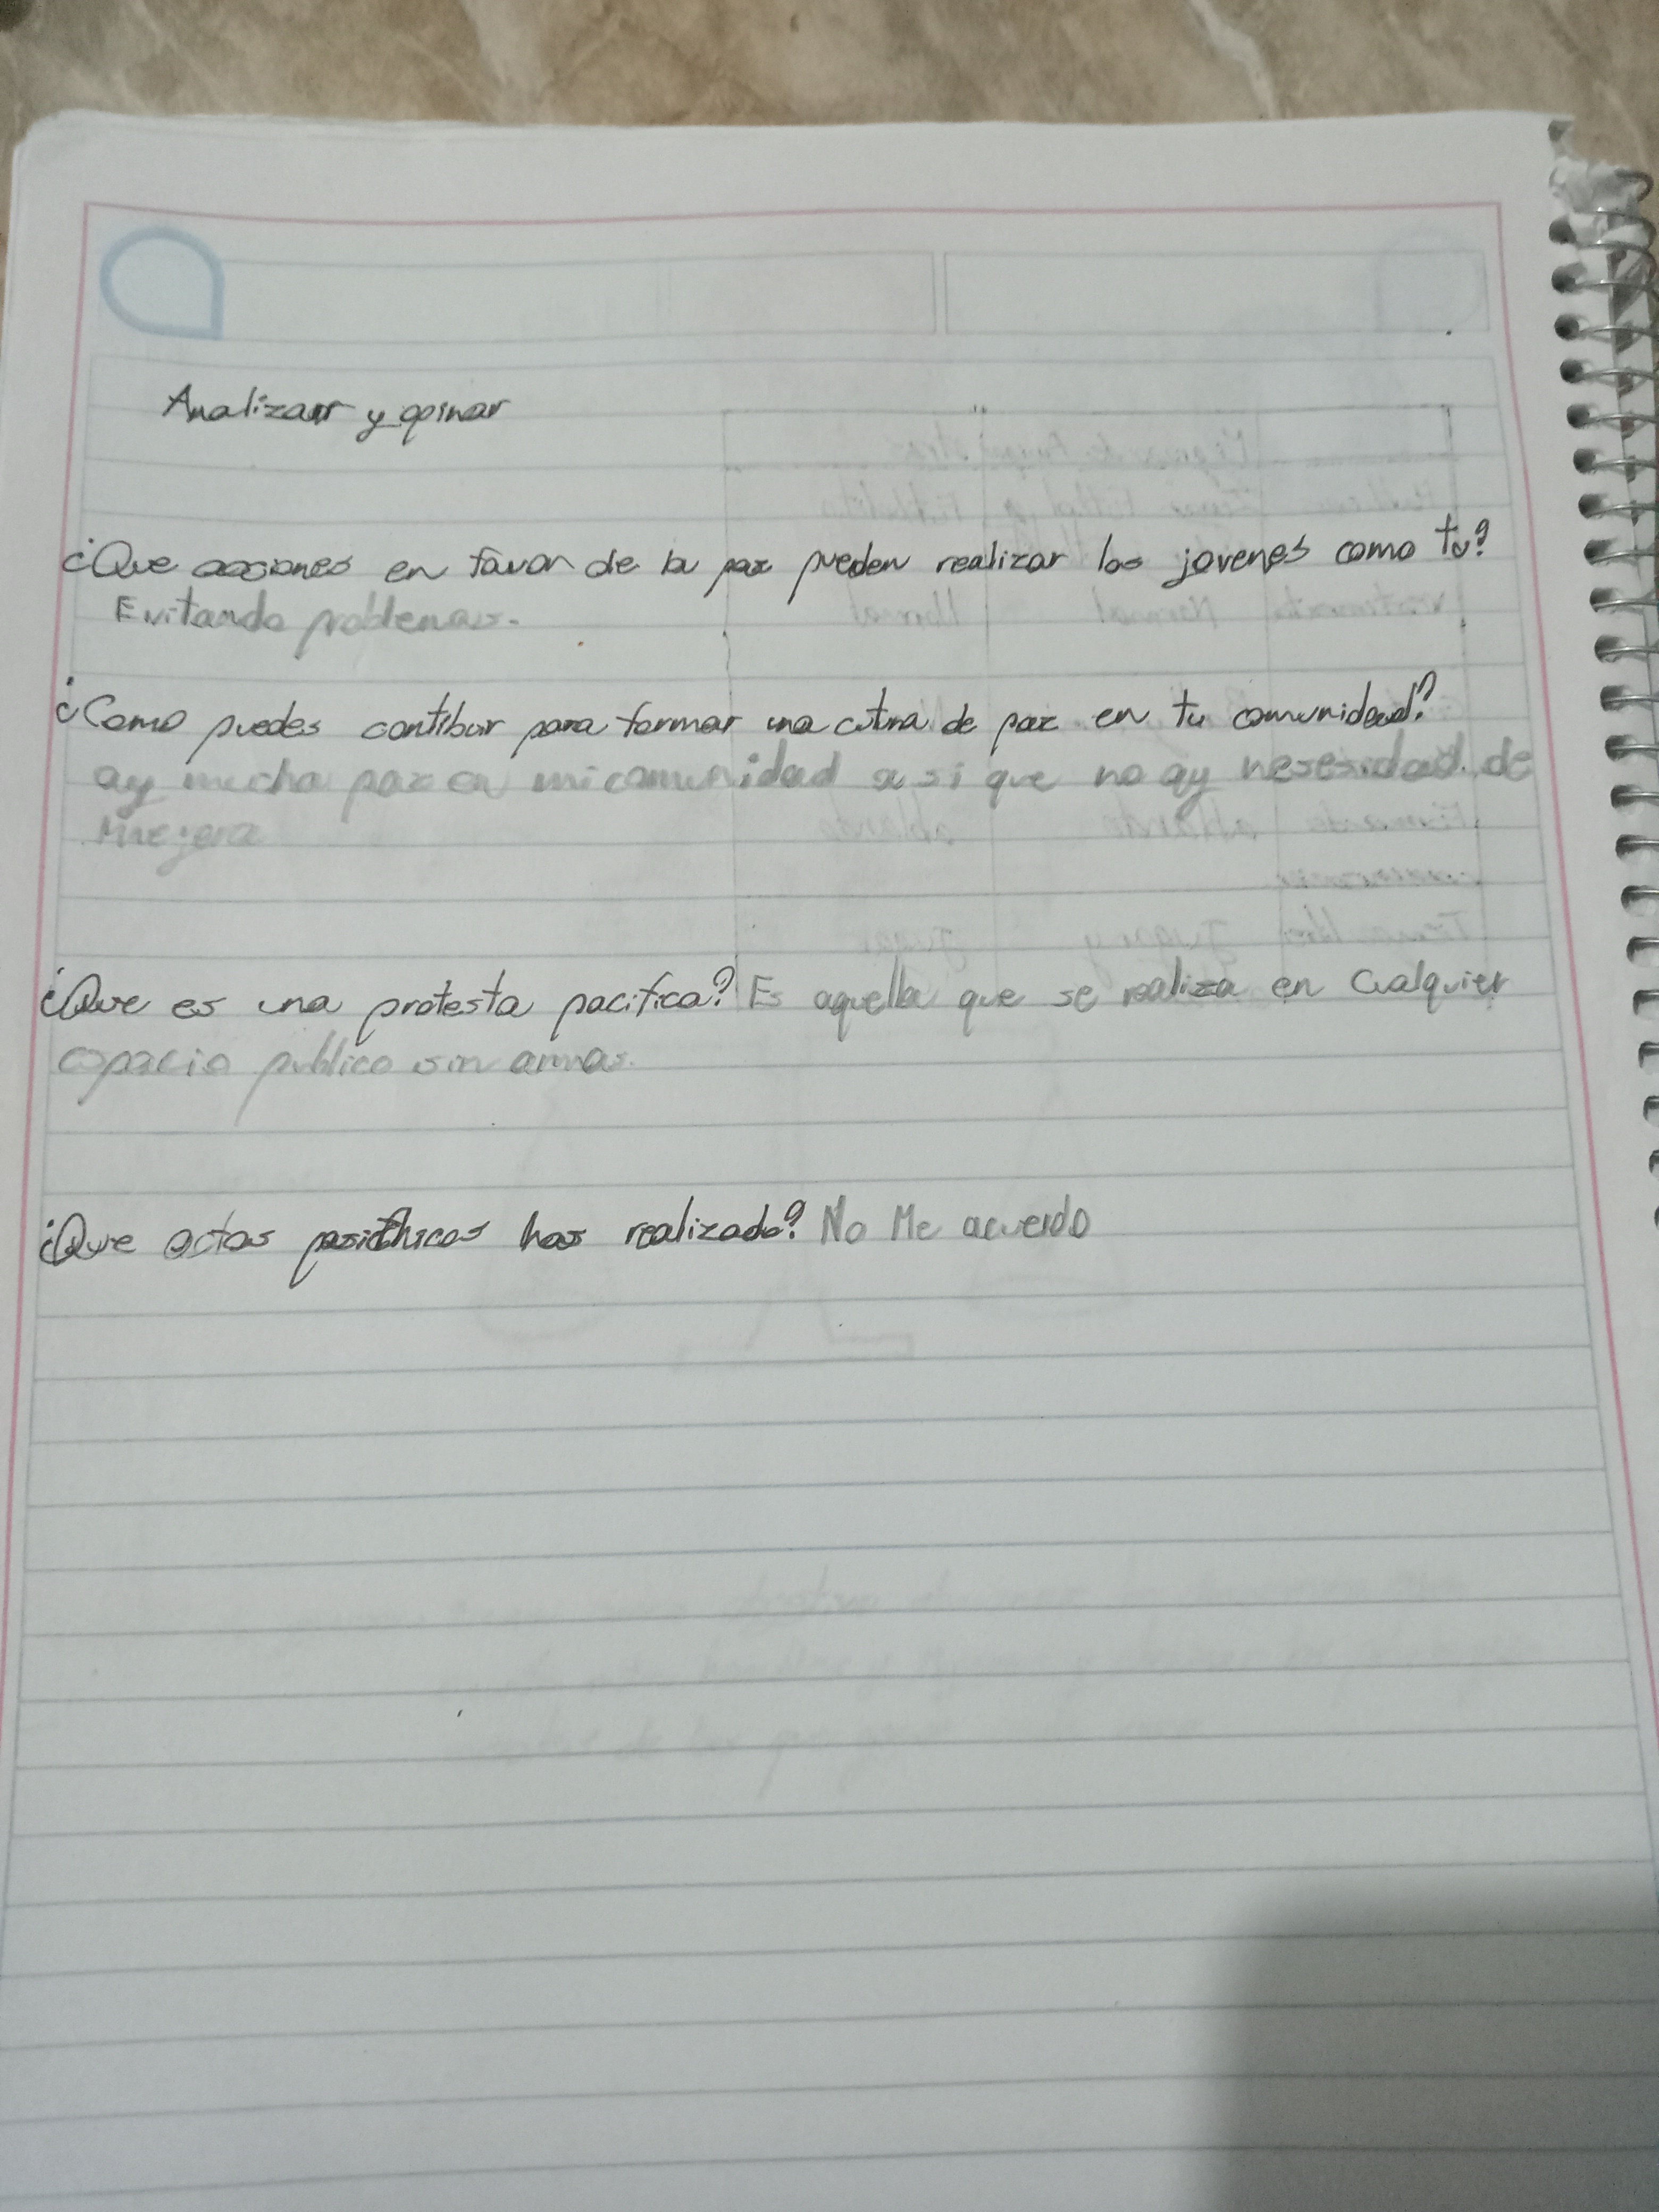 Analizar y opinar
¿Que acciones en favor de la paz pueden realizar los jovenes como tu?
Evitando problemas.
¿Como puedes contibur para formar una cutura de paz en tu comunidad?
ay mucha paz en mi comunidad a si que no ay nesesidad de
Miejora
¿Que es una protesta pacifica? Es aquella que se realiza en Cualquier
espacio publico sin armas.
¿Que actos has realizado? No Me acuerdo